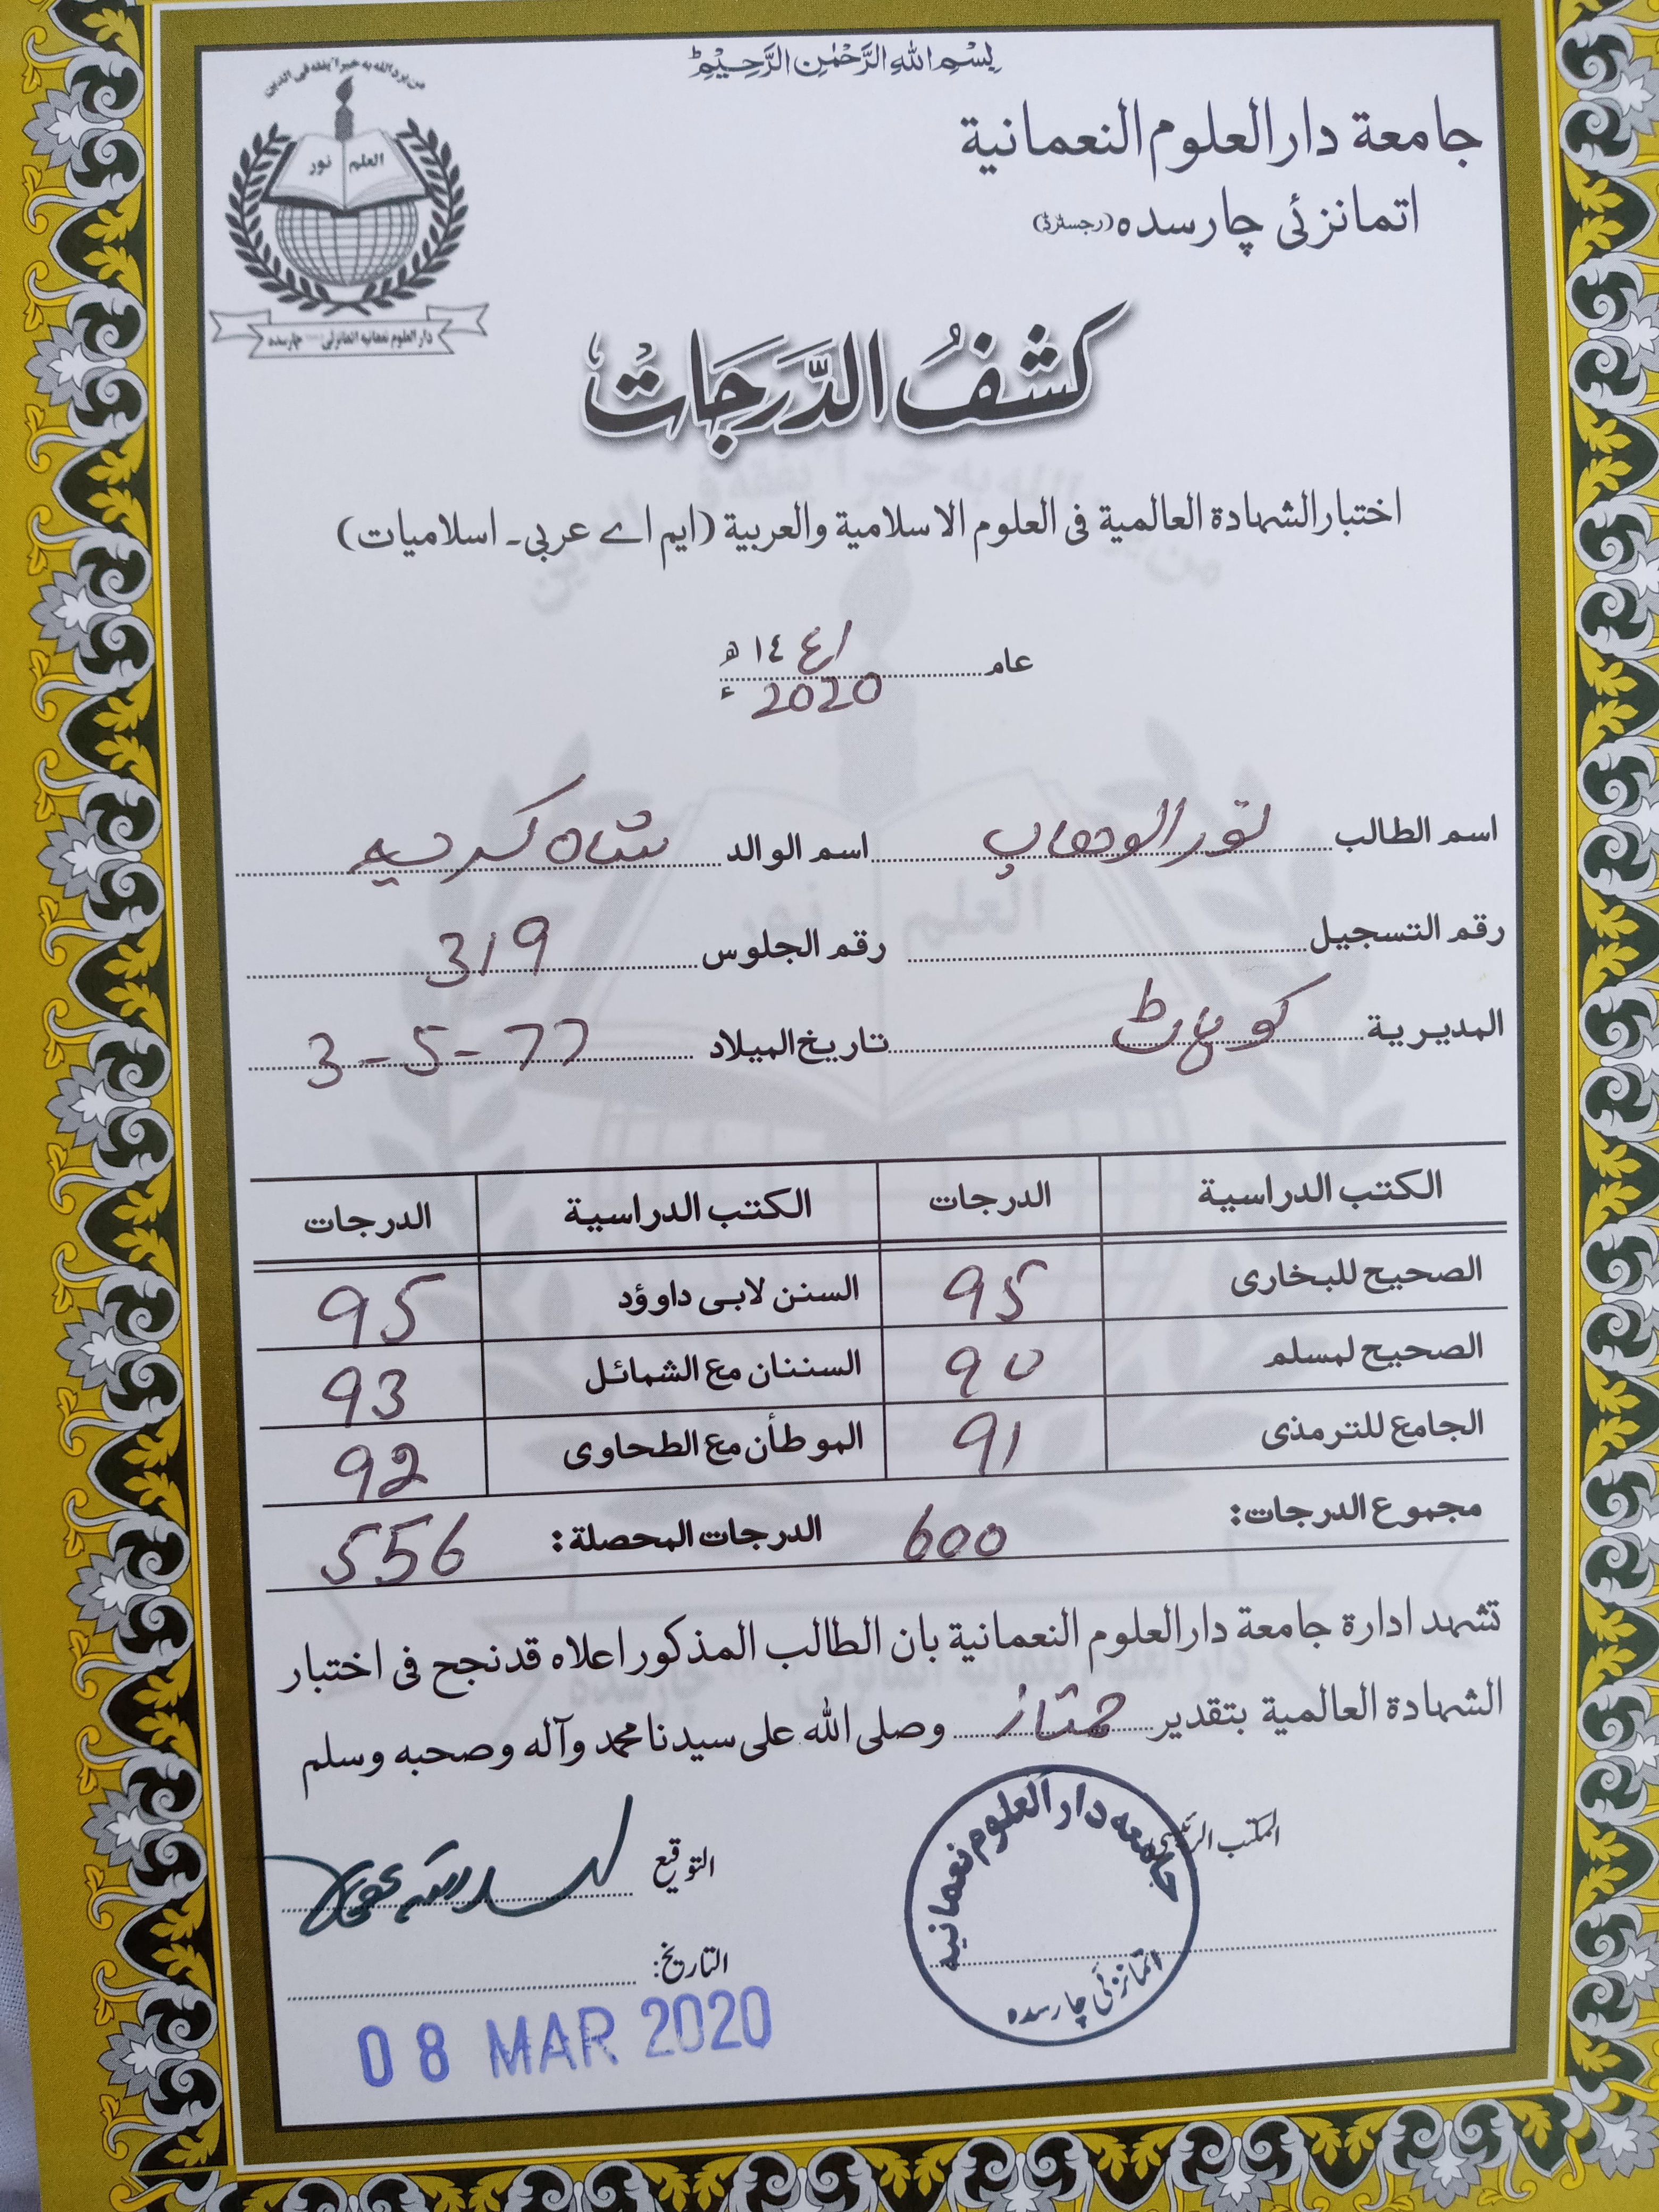 بِسْمِ اللهِ الرَّحْمٰنِ الرَّحِيْمِ
من يرد الله به خيرا يفقه فى الدين
العلم نور
دارالعلوم نعمانيه اتمانزئى چارسده
جامعة دارالعلوم النعمانية
اتمانزئى چارسده (رجسٹرڈ)
كشفُ الدَّرَجَات
اختبار الشهادة العالمية فى العلوم الاسلامية والعربية (ايم اے عربى۔ اسلاميات)
عام ١٤٤١ ھ
2020 ء
اسم الطالب نور الوهاب اسم الوالد شاه كريم
رقم التسجيل رقم الجلوس 319
المديرية كوہاٹ تاريخ الميلاد 3-5-77
الكتب الدراسية الدرجات الكتب الدراسية الدرجات
الصحيح للبخارى 95 السنن لابى داوؤد 95
الصحيح لمسلم 90 السننان مع الشمائل 93
الجامع للترمذى 91 الموطأن مع الطحاوى 92
مجموع الدرجات: 600 الدرجات المحصلة: 556
تشهد ادارة جامعة دارالعلوم النعمانية بان الطالب المذكور اعلاه قد نجح فى اختبار
الشهادة العالمية بتقدير ممتاز وصلى الله على سيدنا محمد وآله وصحبه وسلم
المكتب الرئيسى التوقيع
جامعه دارالعلوم نعمانيه
اتمانزئى چارسده
التاريخ:
08 MAR 2020